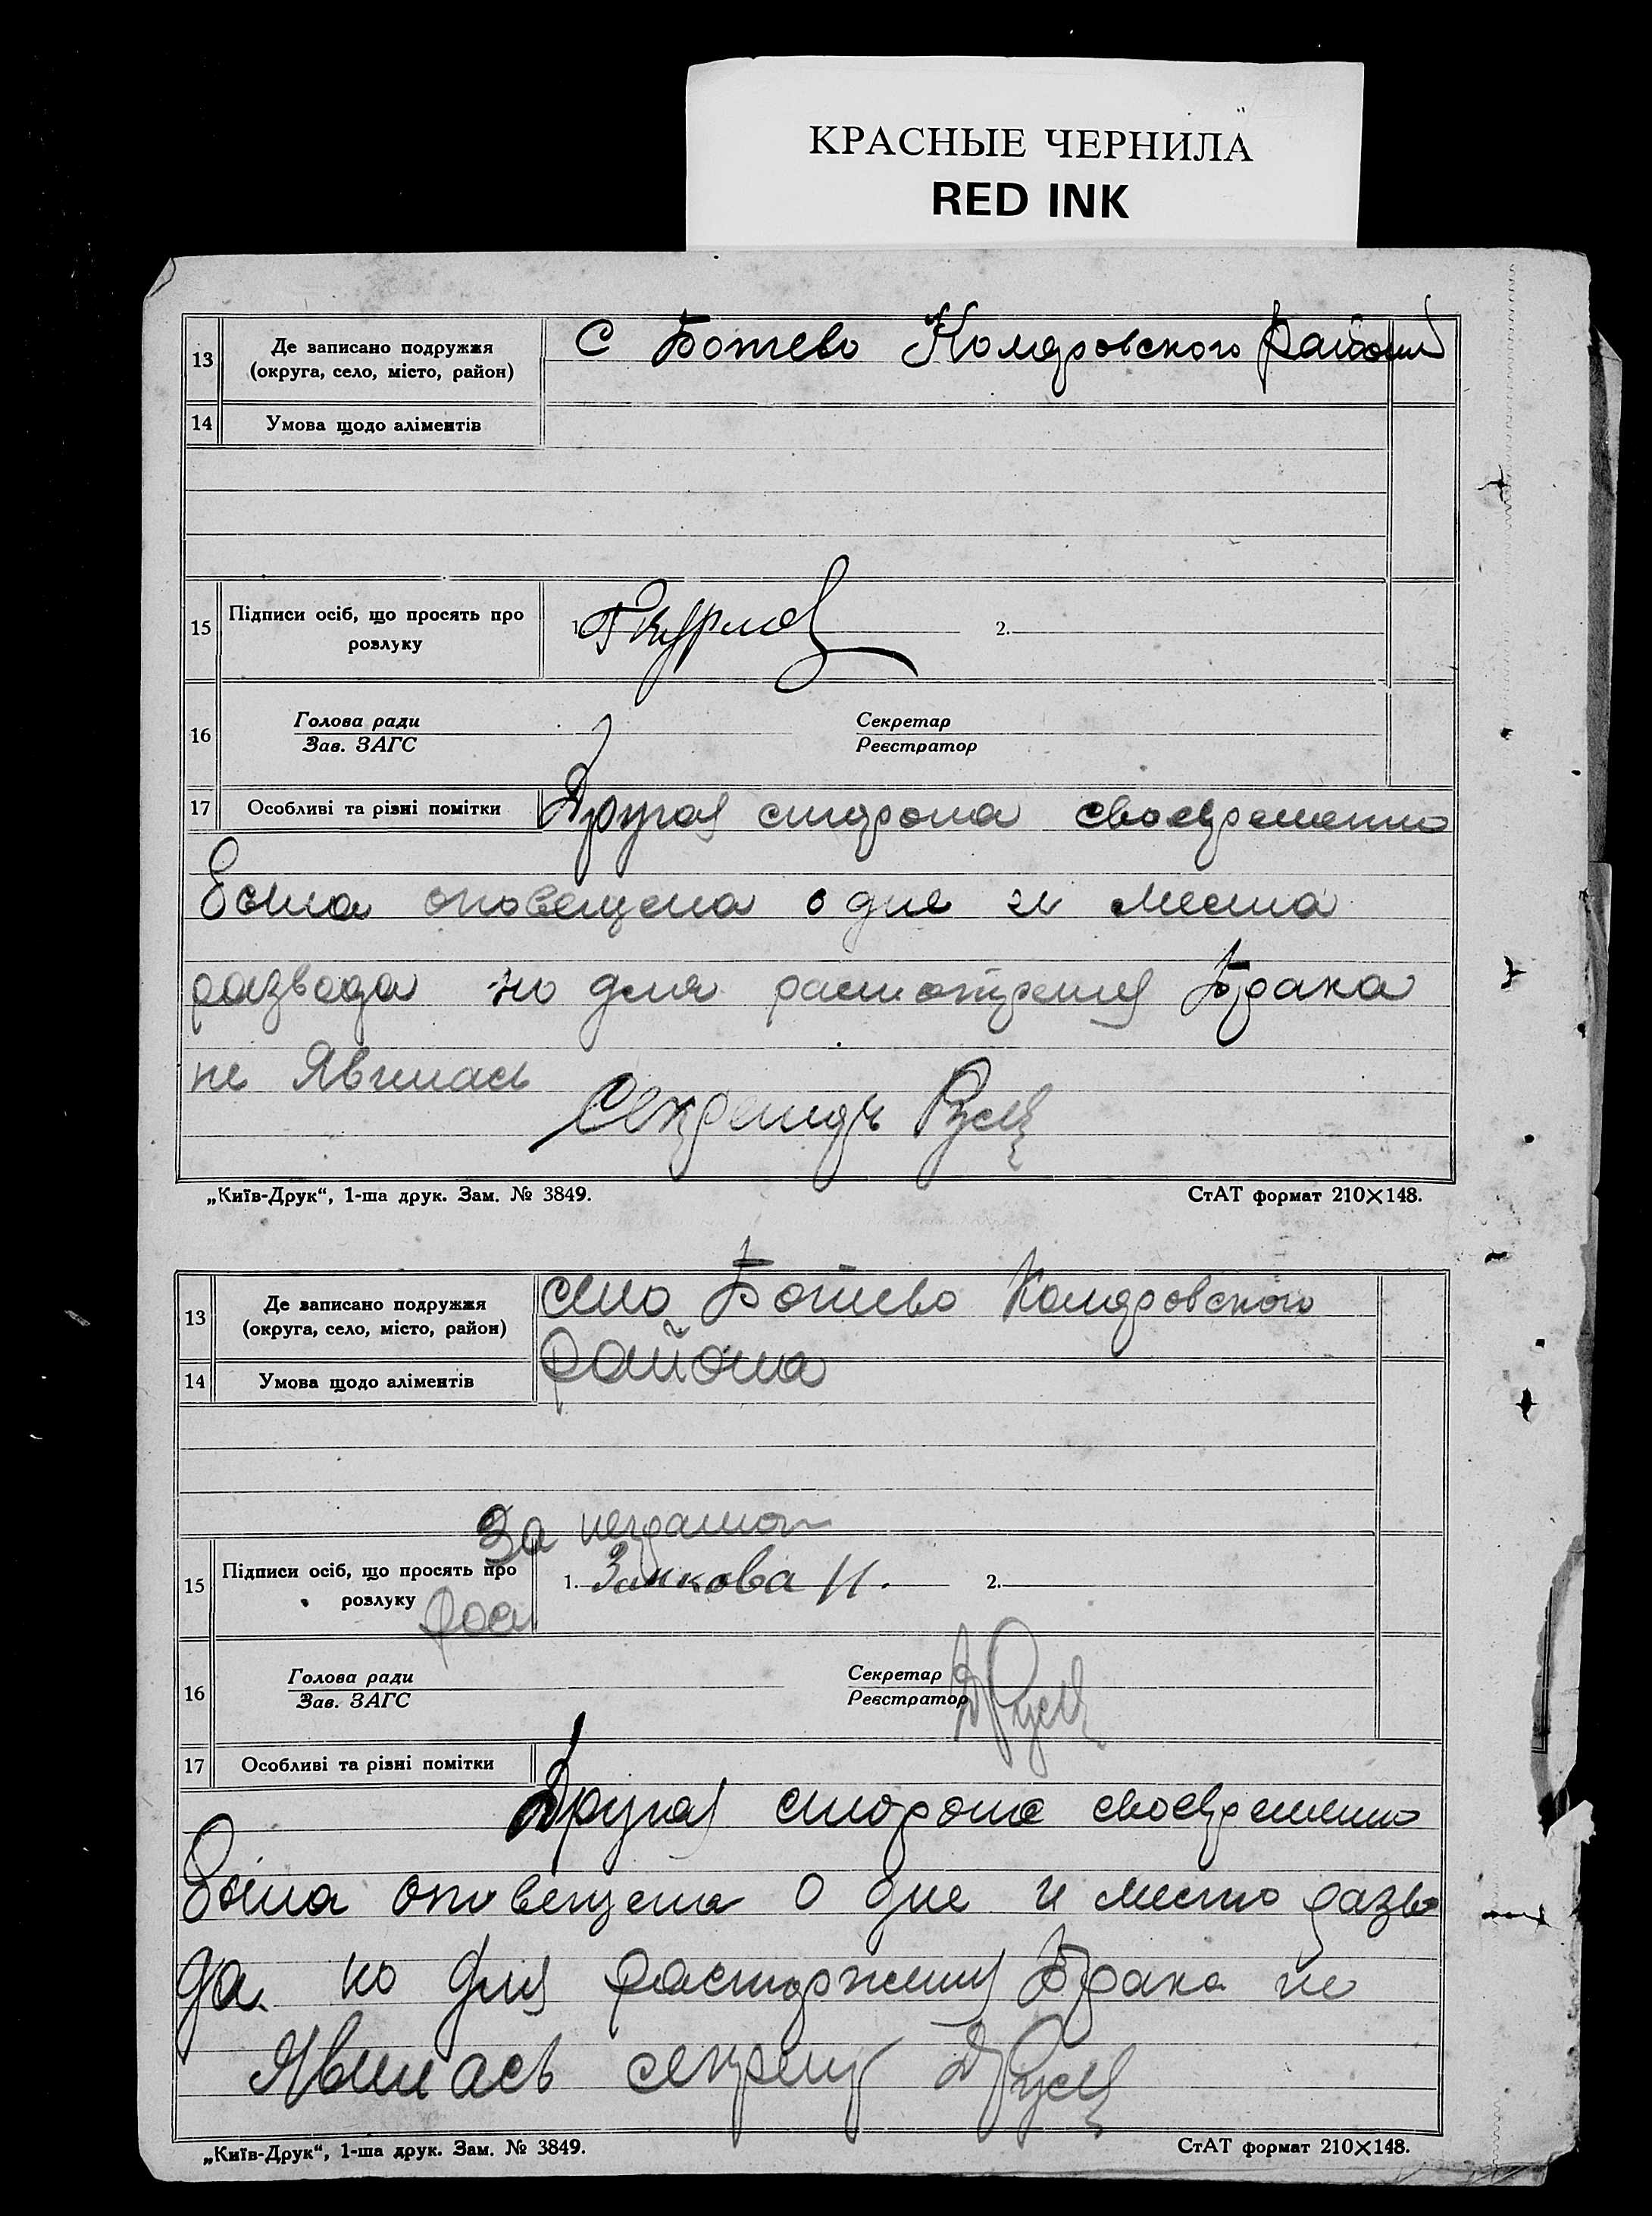 КРАСНЫЕ ЧЕРНИЛА
RED INK
13 Де записано подружжя (округа, село, місто, район) С Ботево Коларовского Района
14 Умова щодо аліментів
15 Підписи осіб, що просять про розлуку 1. 2.
16 Голова ради Секретар
Зав. ЗАГС Реєстратор
17 Особливі та різні помітки Другая сторона своевременно
была оповещена о дне и места
развода но для Брака
не Явилась
Секретарь
„Київ-Друк“, 1-ша друк. Зам. № 3849. СтАТ формат 210×148.
13 Де записано подружжя (округа, село, місто, район) село Ботево Коларовского
района
14 Умова щодо аліментів
За
15 Підписи осіб, що просять про розлуку 1. 2.
16 Голова ради Секретар
Зав. ЗАГС Реєстратор
17 Особливі та різні помітки
Другая сторона своевременно
была оповещена о дне и место разво
да но для Брака не
Явилась
„Київ-Друк“, 1-ша друк. Зам. № 3849. СтАТ формат 210×148.